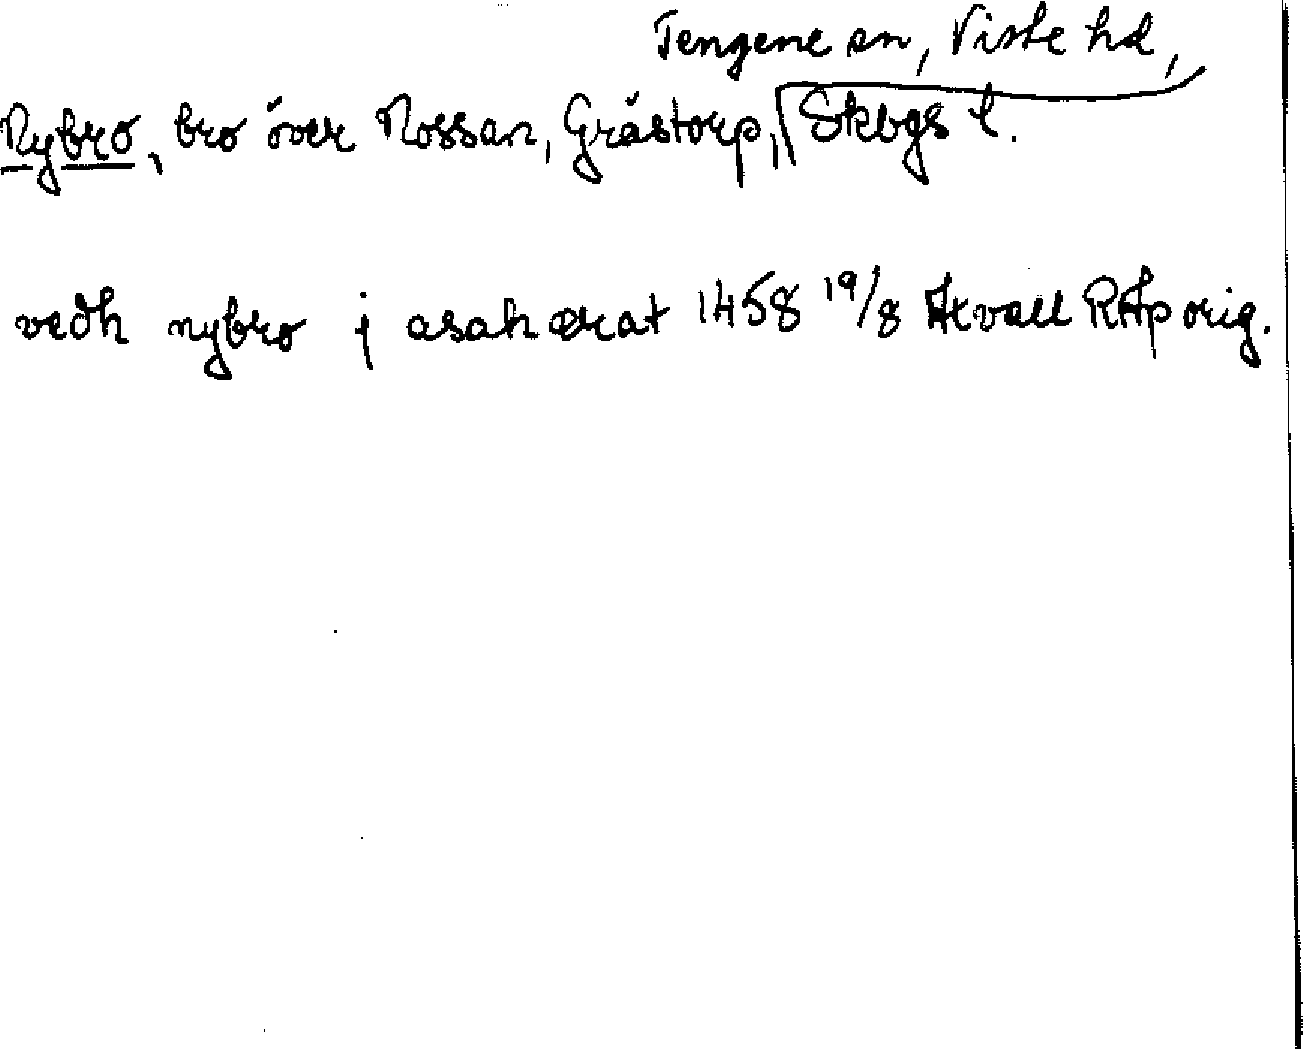 Tengene sn, Viste hd,
Nybro, bro över Nossan, Grästorp, Skbgs l.
vedh nybro j asahærat 1458 19/8 Kvall RAp orig.